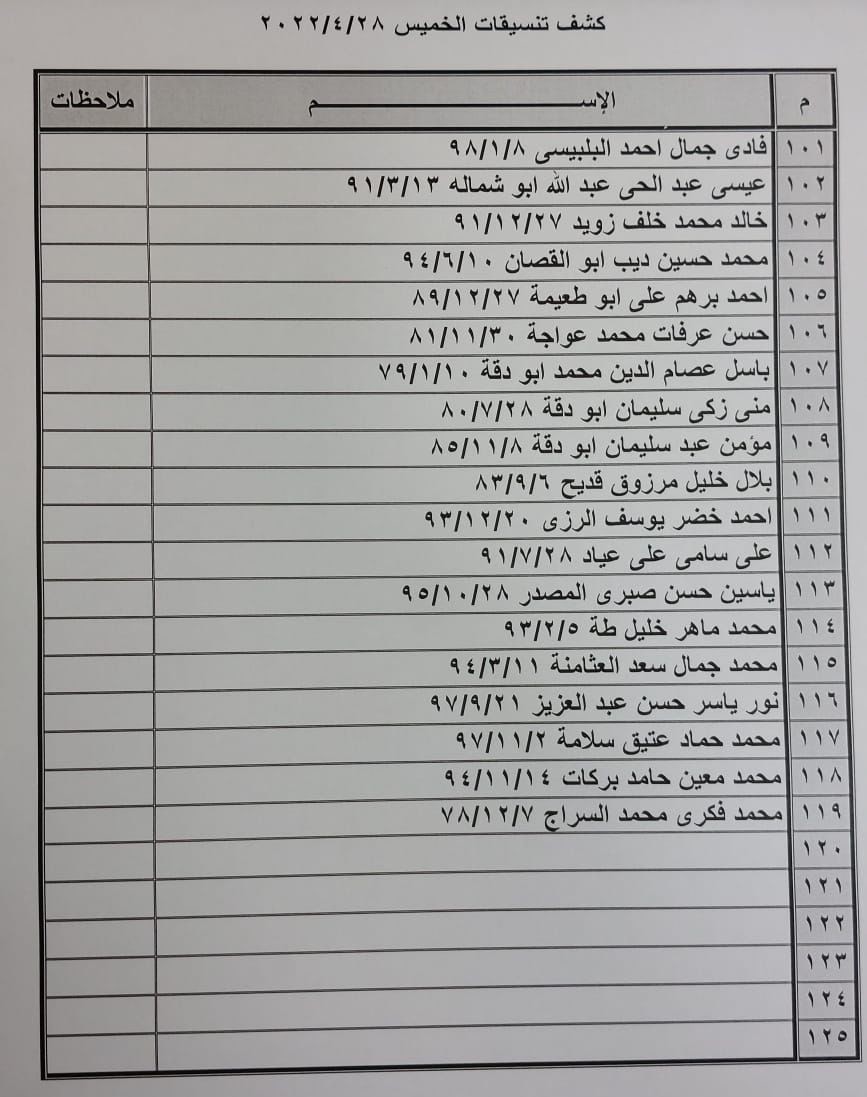 كشف تنسيقات الخميس ٢٠٢٢/٤/٢٨
م الإســــــم ملاحظات
١٠١ فادى جمال احمد البلبيسى ٩٨/١/٨
١٠٢ عيسى عبد الحى عبد الله ابو شماله ٩١/٣/١٣
١٠٣ خالد محمد خلف زويد ٩١/١٢/٢٧
١٠٤ محمد حسين ديب ابو القصان ٩٤/٦/١٠
١٠٥ احمد برهم على ابو طعيمة ٨٩/١٢/٢٧
١٠٦ حسن عرفات محمد عواجة ٨١/١١/٣٠
١٠٧ باسل عصام الدين محمد ابو دقة ٧٩/١/١٠
١٠٨ منى زكى سليمان ابو دقة ٨٠/٧/٢٨
١٠٩ مؤمن عبد سليمان ابو دقة ٨٥/١١/٨
١١٠ بلال خليل مرزوق قديح ٨٣/٩/٦
١١١ احمد خضر يوسف الرزى ٩٣/١٢/٢٠
١١٢ على سامى على عياد ٩١/٧/٢٨
١١٣ ياسين حسن صبرى المصدر ٩٥/١٠/٢٨
١١٤ محمد ماهر خليل طة ٩٣/٢/٥
١١٥ محمد جمال سعد العثامنة ٩٤/٣/١١
١١٦ نور ياسر حسن عبد العزيز ٩٧/٩/٢١
١١٧ محمد حماد عتيق سلامة ٩٧/١١/٢
١١٨ محمد معين حامد بركات ٩٤/١١/١٤
١١٩ محمد فكرى محمد السراج ٧٨/١٢/٧
١٢٠
١٢١
١٢٢
١٢٣
١٢٤
١٢٥